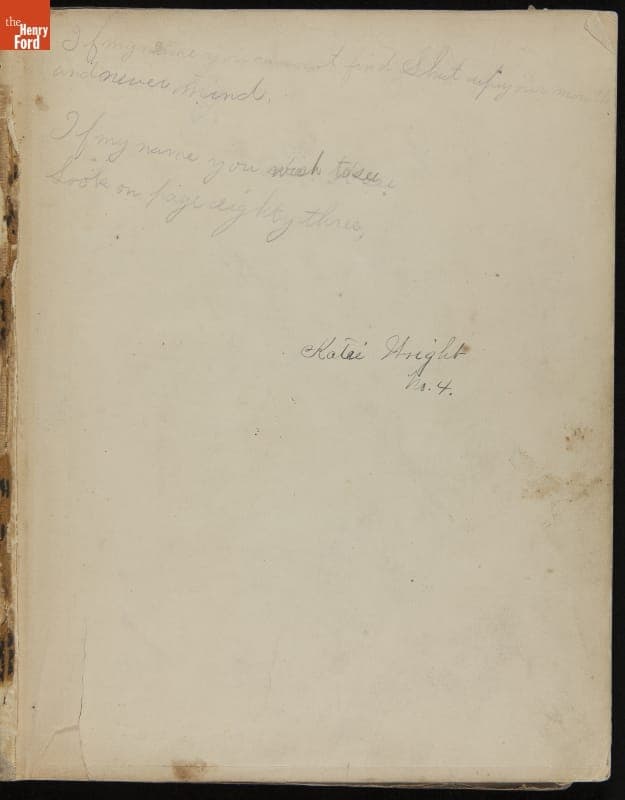 the
Henry
Ford
If my name you cannot find Shut up your mouth
and never mind.
If my name you wish to see
Look on page eighty three,
Katei Wright
No. 4.